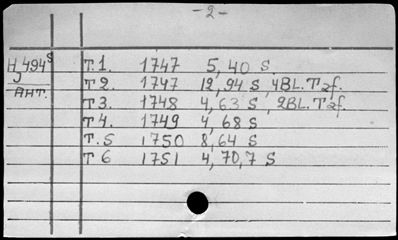 - 2 -
H 494 s T. 1. 1747 5, 40 S.
J T 2. 1747 12, 94 S 4BL. T 2f.
АНТ. T 3. 1748 4, 63 S, 2BL. T 2f.
T 4. 1749 4, 68 S
T. 5 1750 8, 64 S
T 6 1751 4, 70, 7 S